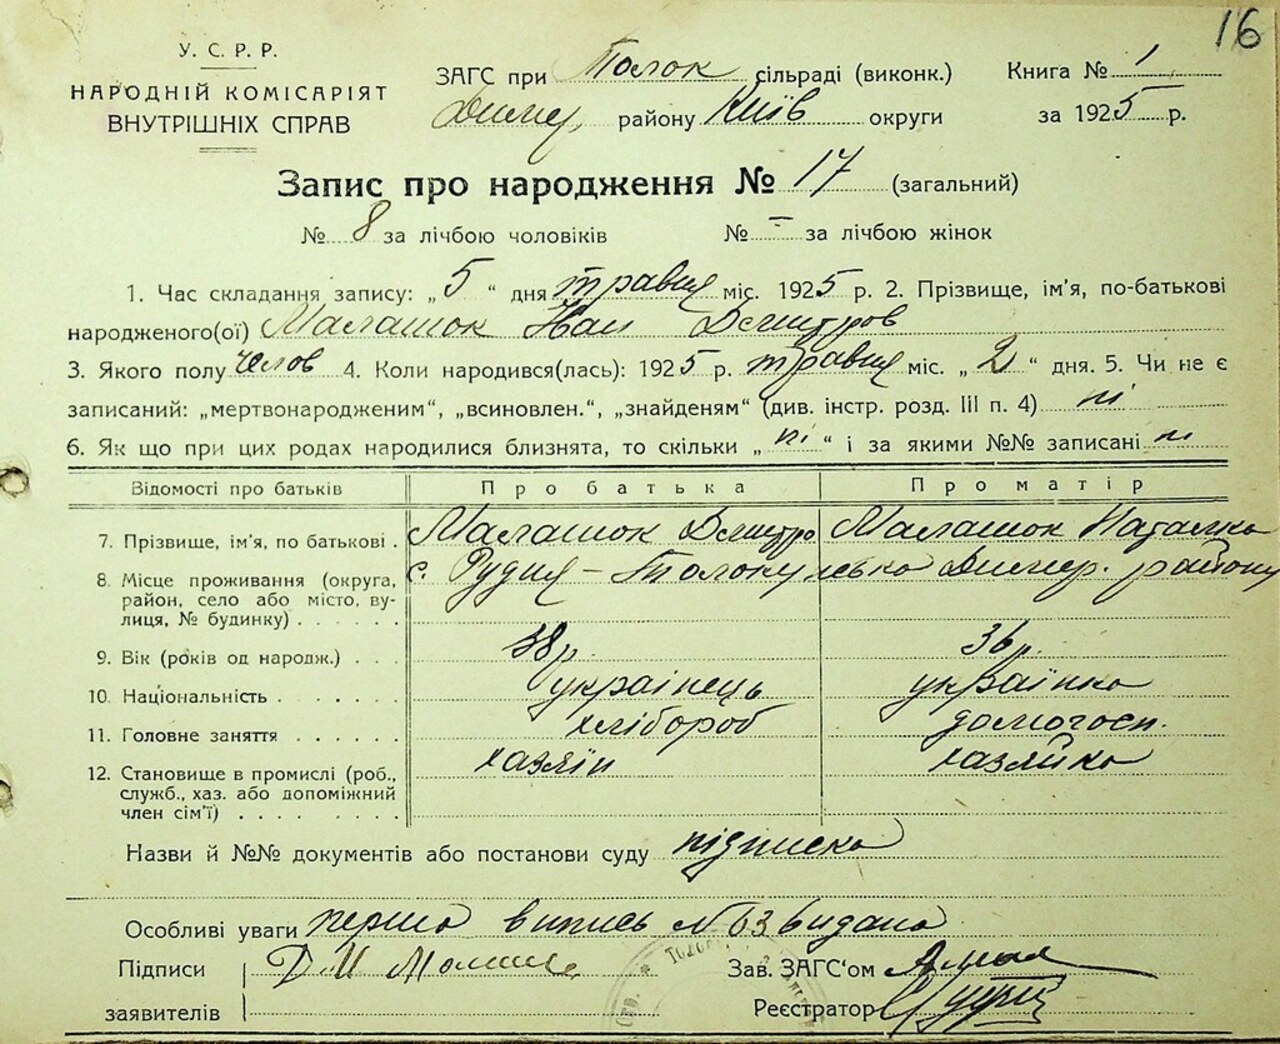 16
У. С. Р. Р.
НАРОДНІЙ КОМІСАРІЯТ
ВНУТРІШНІХ СПРАВ
ЗАГС при Толок сільраді (виконк.)
Димер, району Київ округи
Книга № 1
за 1925 р.
Запис про народження № 17 (загальний)
№ 8 за лічбою чоловіків № - за лічбою жінок
1. Час складання запису: „ 5 “ дня травня міс. 1925 р. 2. Прізвище, ім'я, по-батькові
народженого(ої) Малашок Іван Дмитров
3. Якого полу челов 4. Коли народився(лась): 1925 р. травня міс. „ 2 “ дня. 5. Чи не є
записаний: „мертвонародженим“, „всиновлен.“, „знайденям“ (див. інстр. розд. III п. 4) ні
6. Як що при цих родах народилися близнята, то скільки „ ні “ і за якими №№ записані ні
Відомості про батьків Про батька Про матір
7. Прізвище, ім'я, по батькові . Малашок Дмитро Малашок Наталка
8. Місце проживання (округа, район, село або місто, ву-лиця, № будинку) . . . . . . с. Рудня-Толокунська Димер. району
9. Вік (років од народж.) . . . 38 р. 36 р.
10. Національність . . . . . . українець українка
11. Головне заняття . . . . . . хлібороб домогосп.
12. Становище в промислі (роб., служб., хаз. або допоміжний член сім'ї) . . . . . . . . хазяїн хазяйка
Назви й №№ документів або постанови суду підписка
Особливі уваги перша випись № 63 видана
Підписи
заявителів
Д И
Зав. ЗАГС'ом
Реєстратор